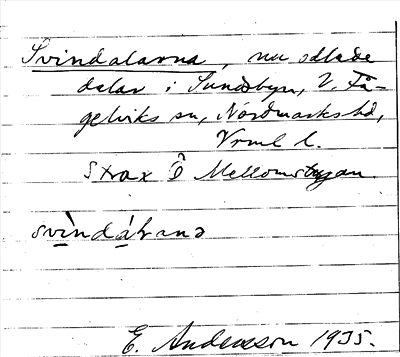 Svindalarna, nu odlade
dalar i Sundsbyn, V. Få-
gelviks sn, Nordmarks hd,
Vrml l.
Strax Ö Mellomstugan
svìndáɫana
E. Andersson 1935.